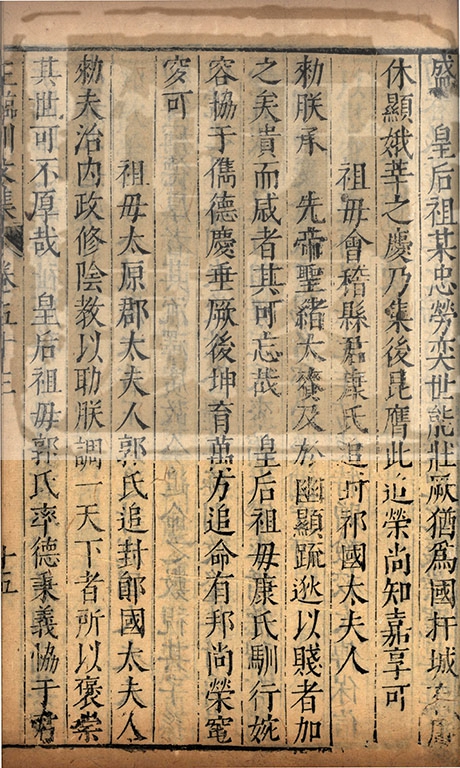 盛 皇后祖某忠勞奕世能壯厥猶為國扞城
休顯娥莘之慶乃集後昆膺此追榮尚知嘉享可
祖母會稽縣君康氏追封祁國太夫人
勑朕承 先帝聖緒大賚及於幽顯疏逖以賤者加
之矣貴而戚者其可忘哉 皇后祖母康氏馴行婉
容協于儁德慶垂厥後坤育萬方追命有邦尚榮窀
穸可
祖母太原郡太夫人郭氏追封郎國太夫人
勑夫治內政修陰教以助朕調一天下者所以褒崇
其世可不厚哉 皇后祖母郭氏率德秉義協于君
王臨川文集 卷五十三 十五